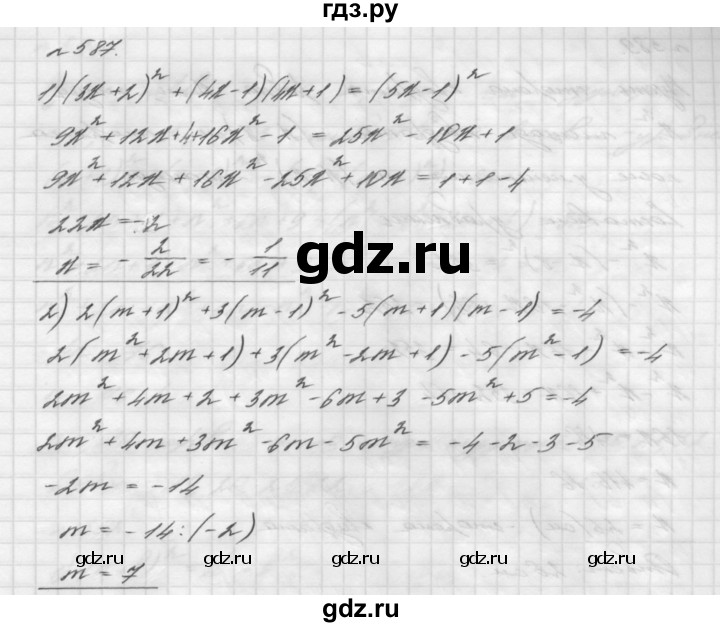 гдз.ру
№ 587.
1) (3x+2)² + (4x-1)(4x+1) = (5x-1)²
9x² + 12x + 4 + 16x² - 1 = 25x² - 10x + 1
9x² + 12x + 16x² - 25x² + 10x = 1 + 1 - 4
22x = -2
x = - 2/22 = - 1/11
gdz.ru
2) 2(m+1)² + 3(m-1)² - 5(m+1)(m-1) = -4
2(m² + 2m + 1) + 3(m² - 2m + 1) - 5(m² - 1) = -4
2m² + 4m + 2 + 3m² - 6m + 3 - 5m² + 5 = -4
2m² + 4m + 3m² - 6m - 5m² = -4 - 2 - 3 - 5
-2m = -14
m = -14 : (-2)
gdz.ru gdz.ru gdz.ru gdz.ru gdz.ru
m = 7
gdz.ru